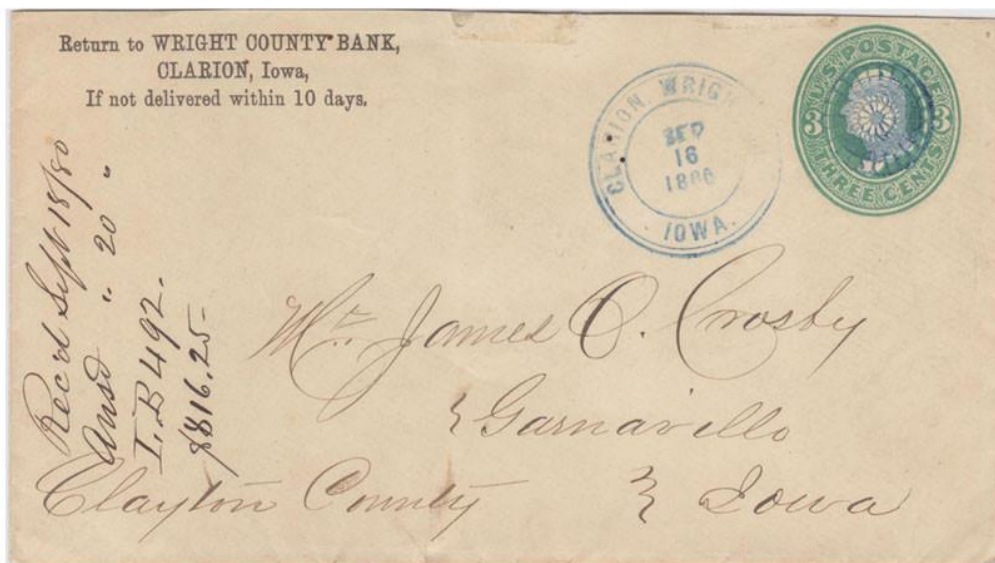 Return to WRIGHT COUNTY BANK,
CLARION, Iowa,
If not delivered within 10 days.
CLARION, WRIG
SEP
16
IOWA.
U.S. POSTAGE
3 3
THREE CENTS
Rec'd Sept 18/80
Ansd " 20 "
I.B 492.
$816.25-
Mr. James O. Crosby
Garnavillo
Clayton County
Iowa